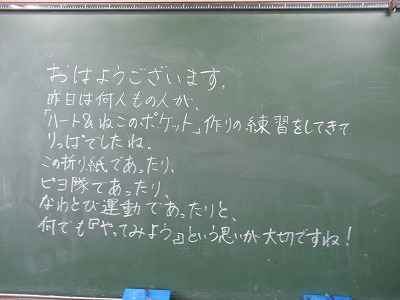 おはようございます。
昨日は何人もの人が、
「ハート&ねこのポケット」作りの練習をしてきて
りっぱでしたね。
この折り紙であったり、
ピヨ隊であったり、
なわとび運動であったりと、
何でも『やってみよう』という思いが大切ですね!